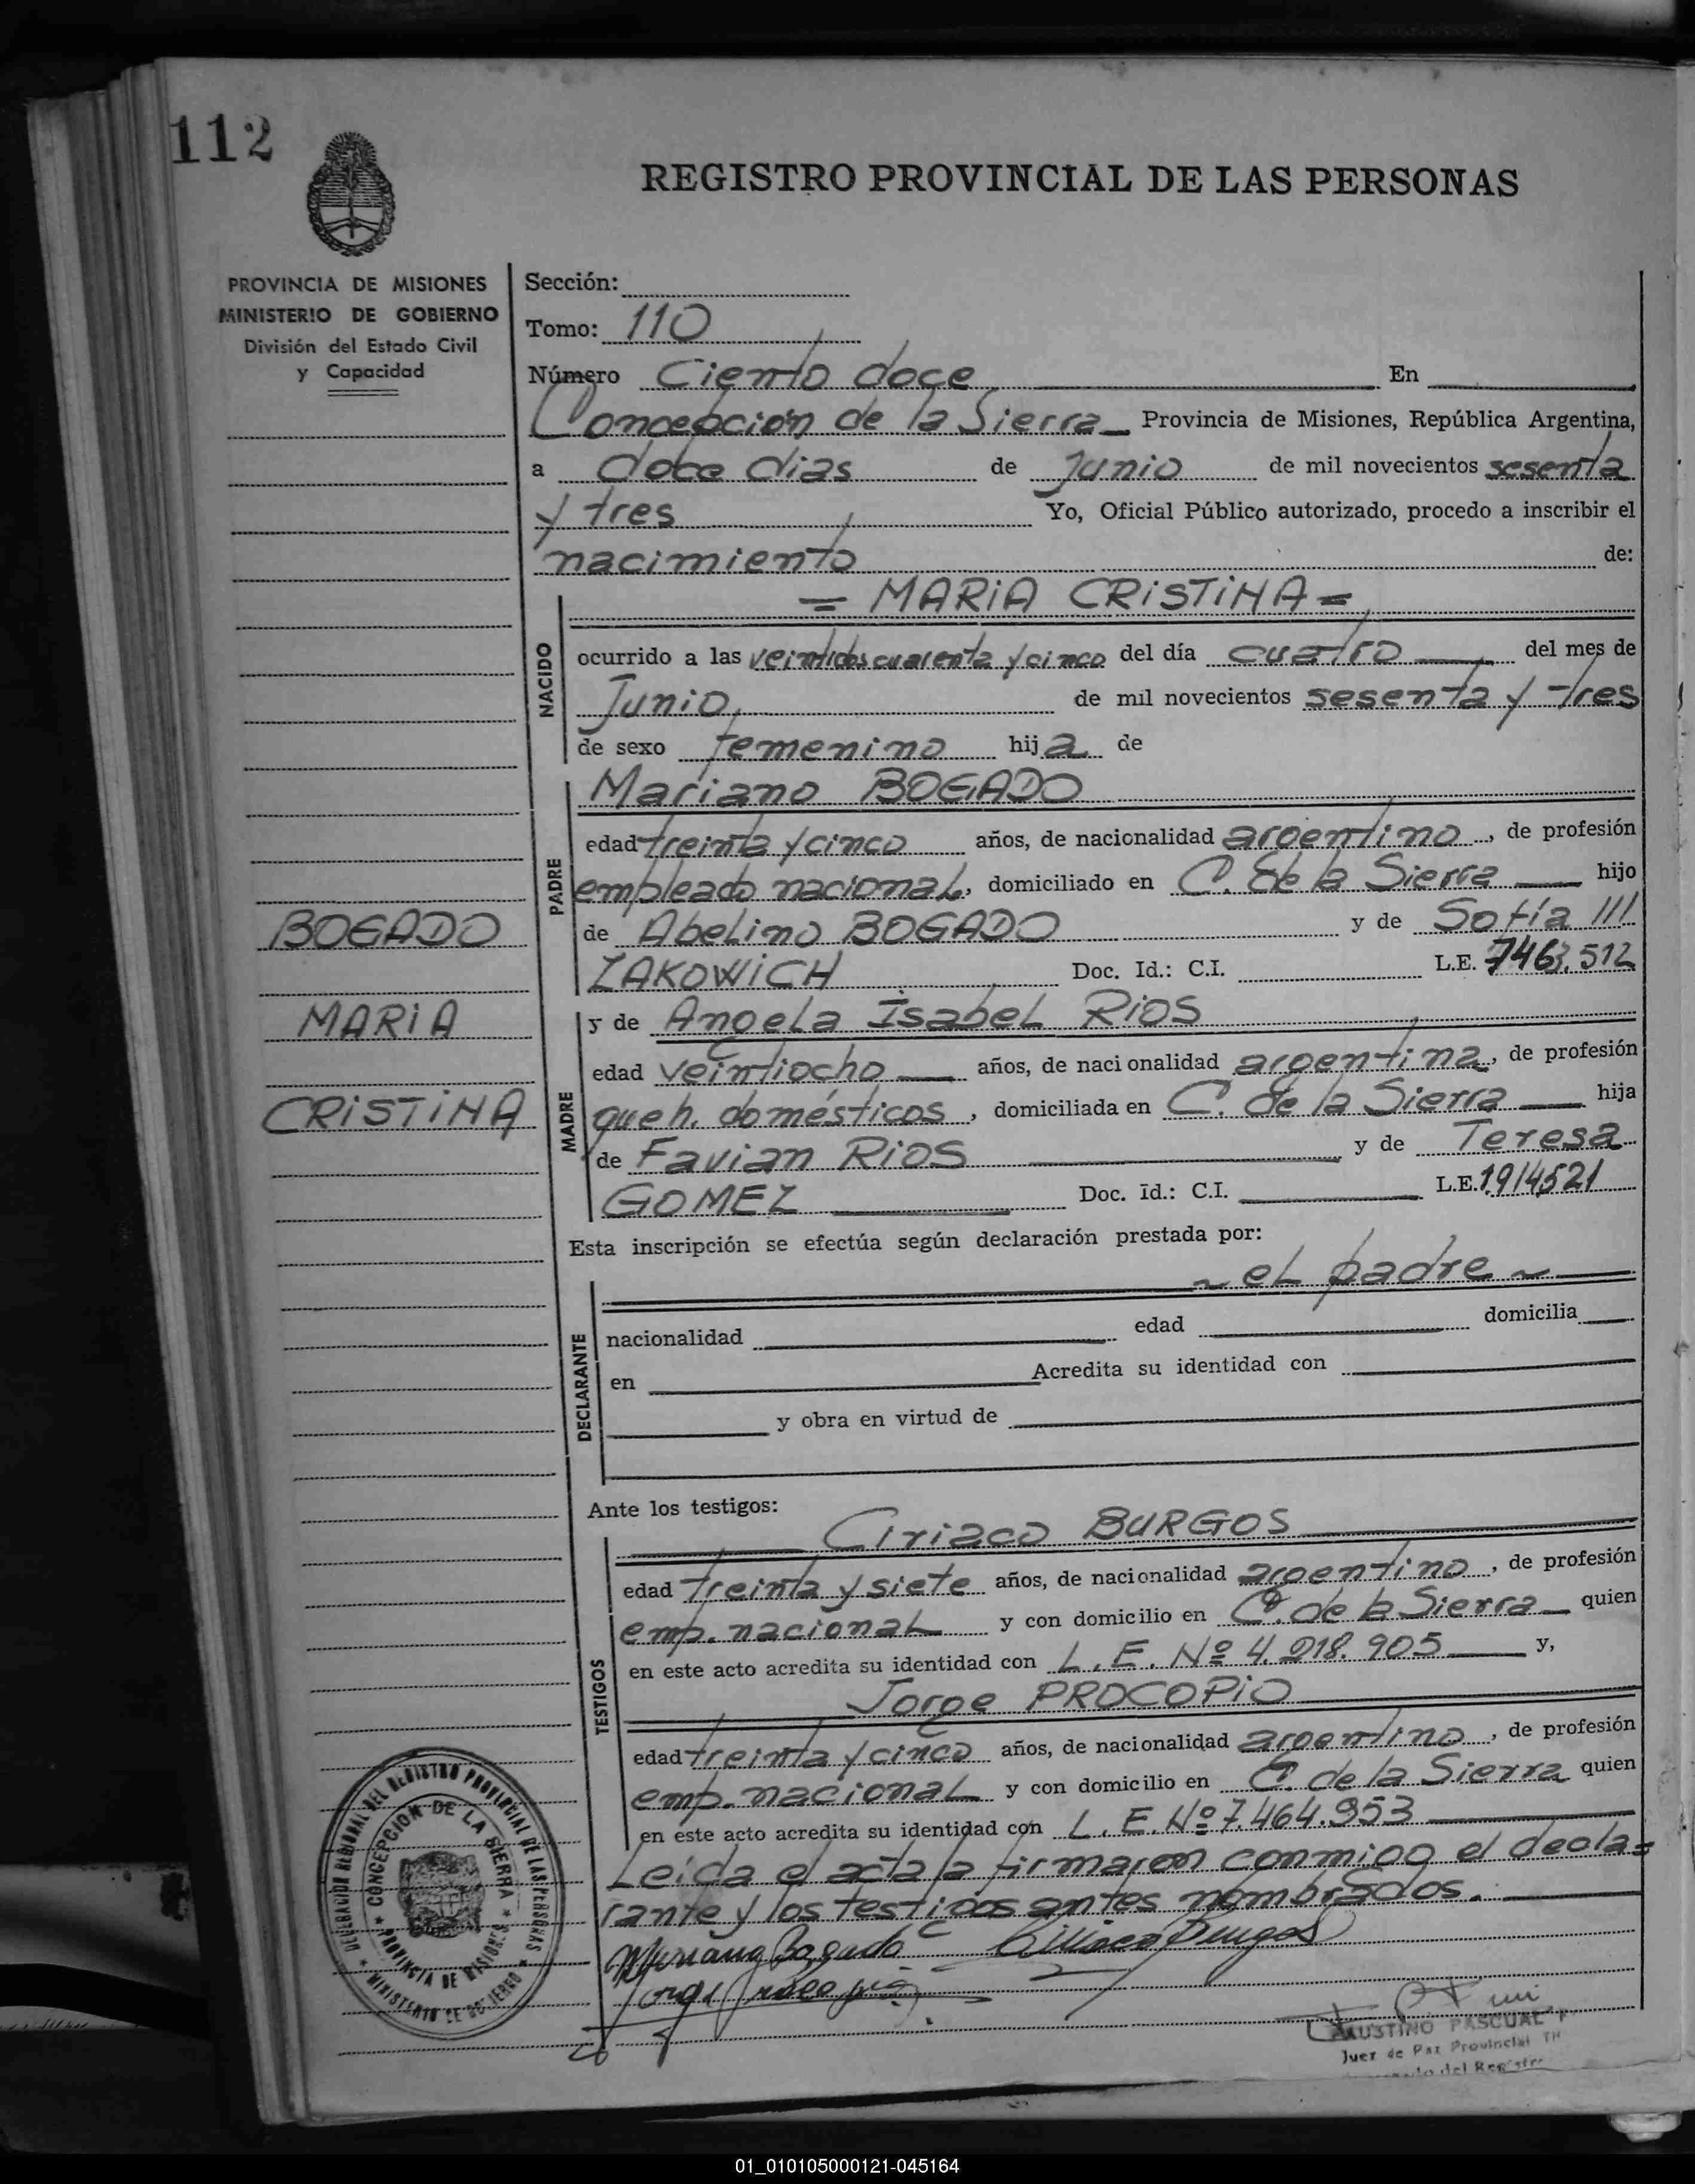 112
REGISTRO PROVINCIAL DE LAS PERSONAS
PROVINCIA DE MISIONES
MINISTERIO DE GOBIERNO
División del Estado Civil
y Capacidad
Sección:
Tomo: 110
Número Ciento doce En
Concepción de la Sierra Provincia de Misiones, República Argentina,
a doce dias de Junio de mil novecientos sesenta
y tres Yo, Oficial Público autorizado, procedo a inscribir el
nacimiento de:
= MARIA CRISTINA =
NACIDO
ocurrido a las veintidos cuarenta y cinco del día cuatro del mes de
Junio, de mil novecientos sesenta y tres
de sexo femenino hija de
Mariano BOGADO
PADRE
edad treinta y cinco años, de nacionalidad argentino, de profesión
empleado nacional, domiciliado en C. de la Sierra hijo
de Abelino BOGADO y de Sofía ///
ZAKOWICH Doc. Id.: C.I. L.E. 7463.512
BOGADO
MARIA
CRISTINA
MADRE
y de Angela Isabel RIOS
edad veintiocho años, de nacionalidad argentina, de profesión
queh. domésticos, domiciliada en C. de la Sierra hija
de Favian RIOS y de Teresa
GOMEZ Doc. Id.: C.I. L.E. 1.914521
Esta inscripción se efectúa según declaración prestada por:
~ el padre ~
DECLARANTE
nacionalidad edad domicilia
en Acredita su identidad con
y obra en virtud de
Ante los testigos:
Ciriaco BURGOS
TESTIGOS
edad treinta y siete años, de nacionalidad argentino, de profesión
emp. nacional y con domicilio en C. de la Sierra quien
en este acto acredita su identidad con L.E. Nº 4.018.905 y,
Jorge PROCOPIO
edad treinta y cinco años, de nacionalidad argentino, de profesión
emp. nacional y con domicilio en C. de la Sierra quien
en este acto acredita su identidad con L.E. Nº 7.464.953
Leida el acta la firmaron conmigo el decla=
rante y los testigos antes nombrados.
Mariano Bogado Ciriaco Burgos
Jorge Procopio
DELEGACION REGIONAL DEL REGISTRO PROVINCIAL DE LAS PERSONAS
* MINISTERIO DE GOBIERNO *
* CONCEPCION DE LA SIERRA *
PROVINCIA DE MISIONES
FAUSTINO PASCUAL
Juez de Paz Provincial
del Registro
01_010105000121-045164